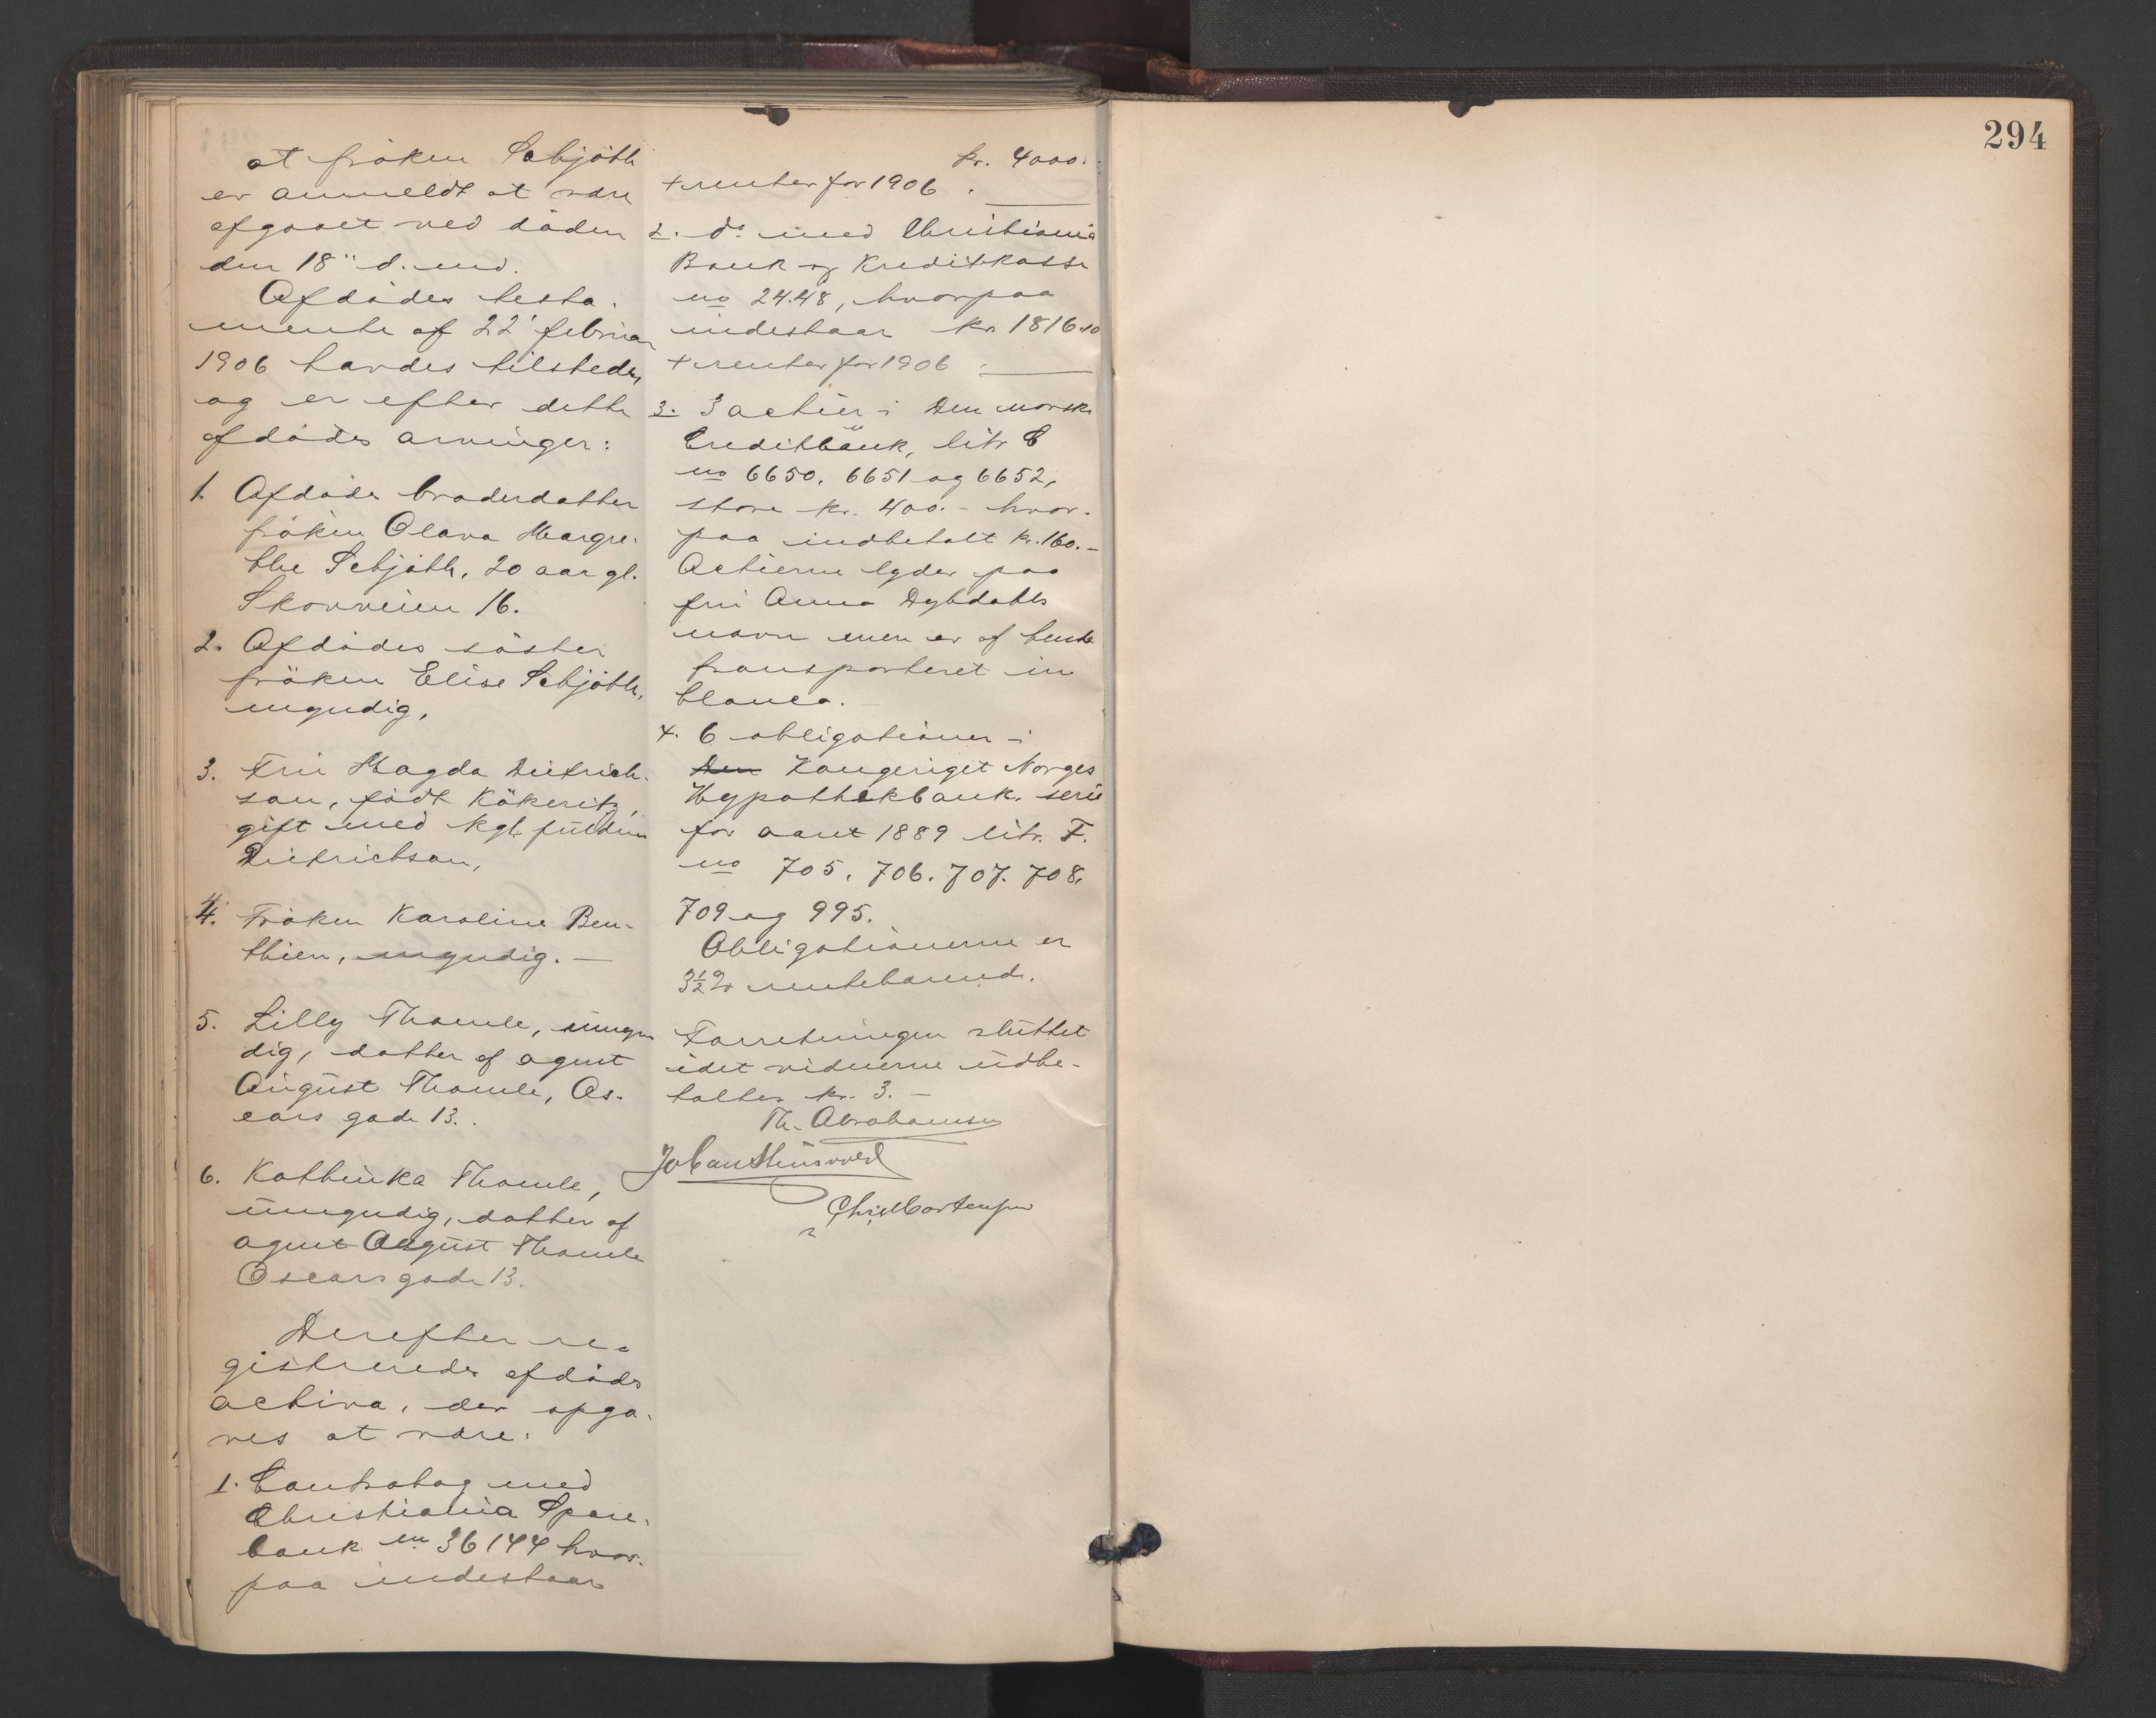 at fröken Schjöth
er anmeldt at være
afgaaet ved döden
den 18" d. md.
Afdödes testa-
mente af 22' februar
1906 havdes tilstede,
og er efter dette
afdödes arvinger:
1. Afdödes broderdatter
fröken Olava Margre-
the Schjöth, 20 aar gl.
Skovveien 16.
2. Afdödes söster
fröken Elise Schjöth,
myndig,
3. Fru Magda Dietrich-
son, födt Kökeritz,
gift med kgl. fuldm
Dietrichson,
4. Fröken Karoline Ben-
thien, myndig. —
5. Lilly Thomle, umyn
dig, datter af agent
August Thomle, Os-
cars gade 13.
6. Kathinka Thomle,
umyndig, datter af
agent August Thomle
Oscarsgade 13.
Derefter re-
gistreredes afdödes
activa, der opga-
ves at være:
1. Contrabog med
Christiania Spare-
bank no 36144 hvor-
paa indestaar
kr. 4000.-
+ renter for 1906
2. do med Christiania
Bank og Kreditkasse
no 2448, hvorpaa
indestaar kr. 1816.10
+ renter for 1906
3. 3 actier i Den norske
Creditbank, litr C
no 6650. 6651 og 6652,
store kr. 400.- hvor-
paa indbetalt kr. 160.-
Actierne lyder paa
fru Anna Dybdahls
navn men er af hende
transporteret in
blanco. —
4. 6 obligationer i
Den Kongeriget Norges
Hypothekbank, serie
for aaret 1889 litr. F.
no 705. 706. 707. 708.
709 og 995.
Obligationerne er
3½ % rentebærende.
Forretningen sluttet
idet vidnerne udbe-
taltes kr. 3. —
Th. Abrahamsen
Johan
Chr. Mortensen
294